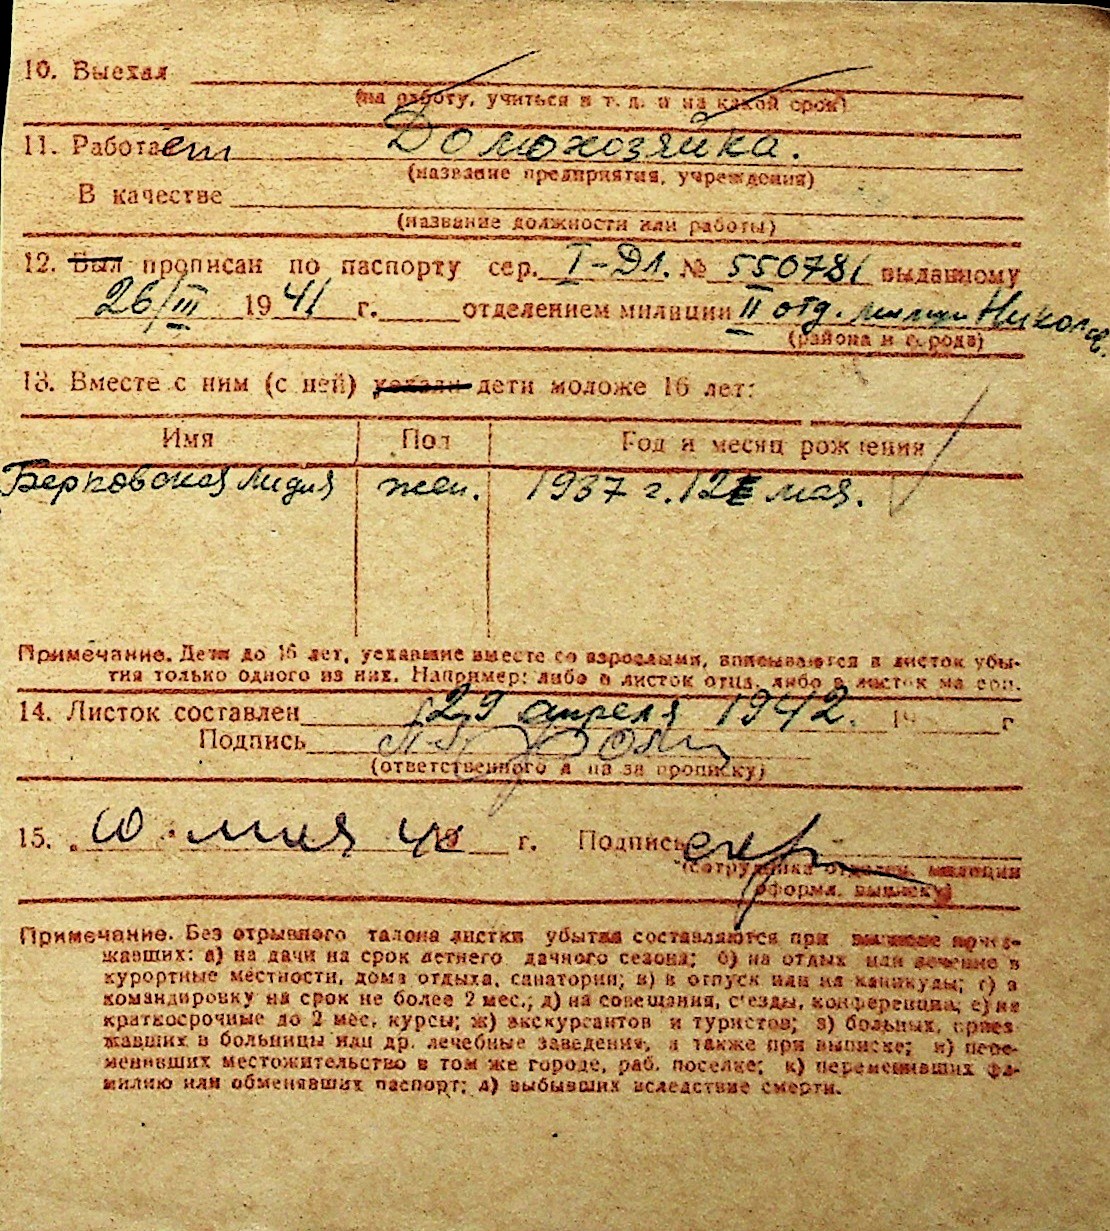 10. Выехал
(на работу, учиться и т. д. и на какой срок)
11. Работает Домохозяйка.
(название предприятия, учреждения)
В качестве
(название должности или работы)
12. Был прописан по паспорту сер. I-Дл. № 550781 выданному
26/III 1941 г. отделением милиции II отд. милиции Николаев.
(района и города)
13. Вместе с ним (с ней) уехали дети моложе 16 лет:
Имя Пол Год и месяц рождения
Берковская Лидия жен. 1937 г. 12 мая.
Примечание. Дети до 16 лет, уехавшие вместе со взрослыми, вписываются в листок убы-
тия только одного из них. Например: либо в листок отца, либо в листок матери.
14. Листок составлен 29 апреля 1942. 19 г
Подпись
(ответственного лица за прописку)
15. „10 мая 42 г. Подпись
(сотрудника отделен. милиции
оформл. выписку)
Примечание. Без отрывного талона листки убытия составляются при выписке приез-
жавших: а) на дачи на срок летнего дачного сезона; б) на отдых или лечение в
курортные местности, дома отдыха, санатории; в) в отпуск или на каникулы; г) в
командировку на срок не более 2 мес.; д) на совещания, с'езды, конференции; е) на
краткосрочные до 2 мес. курсы; ж) экскурсантов и туристов; з) больных, приез-
жавших в больницы или др. лечебные заведения, а также при выписке; и) пере-
менивших местожительство в том же городе, раб. поселке; к) переменивших фа-
милию или обменявших паспорт; л) выбывших вследствие смерти.